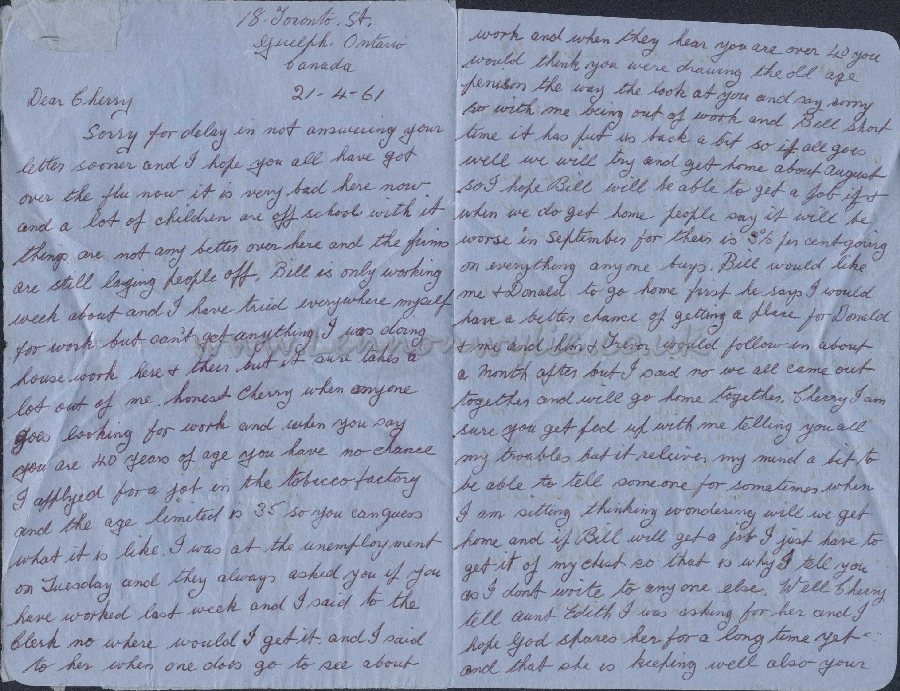 18. Toronto. St.
Guelph. Ontario
Canada
21-4-61
Dear Cherry
Sorry for delay in not answering your
letter sooner and I hope you all have got
over the flu now it is very bad here now
and a lot of children are off school with it
things are not any better over here and the firms
are still laying people off. Bill is only working
week about and I have tried everywhere myself
for work but can't get anything I was doing
house work here & their but it sure takes a
lot out of me. honest Cherry when anyone
goes looking for work and when you say
you are 40 years of age you have no chance
I applyed for a job in the tobacco factory
and the age limited is 35 so you can guess
what it is like. I was at the unemployment
on Tuesday and they always asked you if you
have worked last week and I said to the
Clerk no where would I get it and I said
to her when one does go to see about
work and when they hear you are over 40 you
would think you were drawing the old age
penison the way the look at you and say sorry
so with me being out of work and Bill short
time it has put us back a bit so if all goes
well we will try and get home about August
so I hope Bill will be able to get a job if &
when we do get home people say it will be
worse in September for theis is 3% per cent going
on everything anyone buys. Bill would like
me & Donald to go home first he says I would
have a better chance of getting a place for Donald
& me and him & Trevor would follow in about
a month after but I said no we all came out
together and will go home together. Cherry I am
sure you get fed up with me telling you all
my troubles but it relieves my mind a bit to
be able to tell someone for sometimes when
I am sitting thinking wondering will we get
home and if Bill will get a job I just have to
get it of my chest so that is why I tell you
as I dont write to anyone else. Well Cherry
tell aunt Edith I was asking for her and I
hope God spares her for a long time yet
and that she is keeping well also your